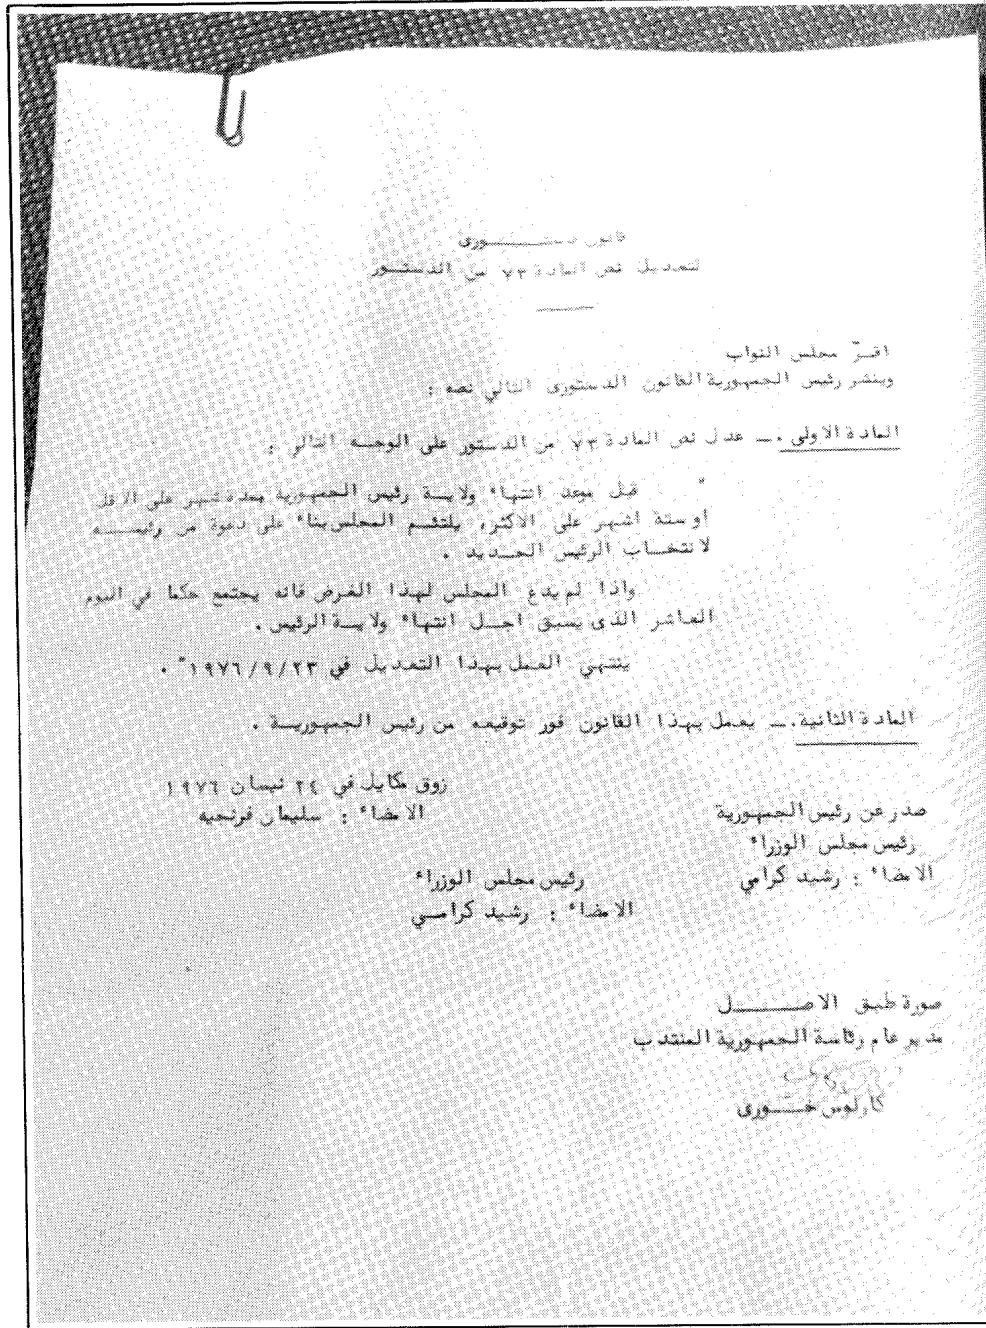 قانون دستـــــــوري
لتعديل نص المادة ٧٣ من الدستــور
اقــرّ مجلس النواب
وينشر رئيس الجمهورية القانون الدستورى التالي نصه :
المادة الاولى .ــ عدل نص المادة ٧٣ من الدستور على الوجــه التالي :
" قبل موعد انتهاء ولايــة رئيس الجمهورية بمدة شهر على الاقل
او ستة اشهر على الاكثر، يلتئــم المجلس بناء على دعوة من رئيســـه
لانتخــاب الرئيس الجــديد .
واذا لم يدع المجلس لهذا الغرض فانه يجتمع حكما في اليوم
العاشر الذى يسبق اجــل انتهاء ولايــة الرئيس .
ينتهي العمل بهذا التعديل في ١٩٧٦/٩/٢٣" .
المادة الثانية .ــ يعمل بهذا القانون فور توقيعه من رئيس الجمهوريــة .
زوق مكايل في ٢٤ نيسان ١٩٧٦
الامضاء : سليمان فرنجيه
صدر عن رئيس الجمهورية
رئيس مجلس الوزراء
الامضاء : رشيد كرامي
رئيس مجلس الوزراء
الامضاء : رشيد كرامــي
صورة طبق الاصـــــــل
مدير عام رئاسة الجمهورية المنتدب
كارلوس خـــورى